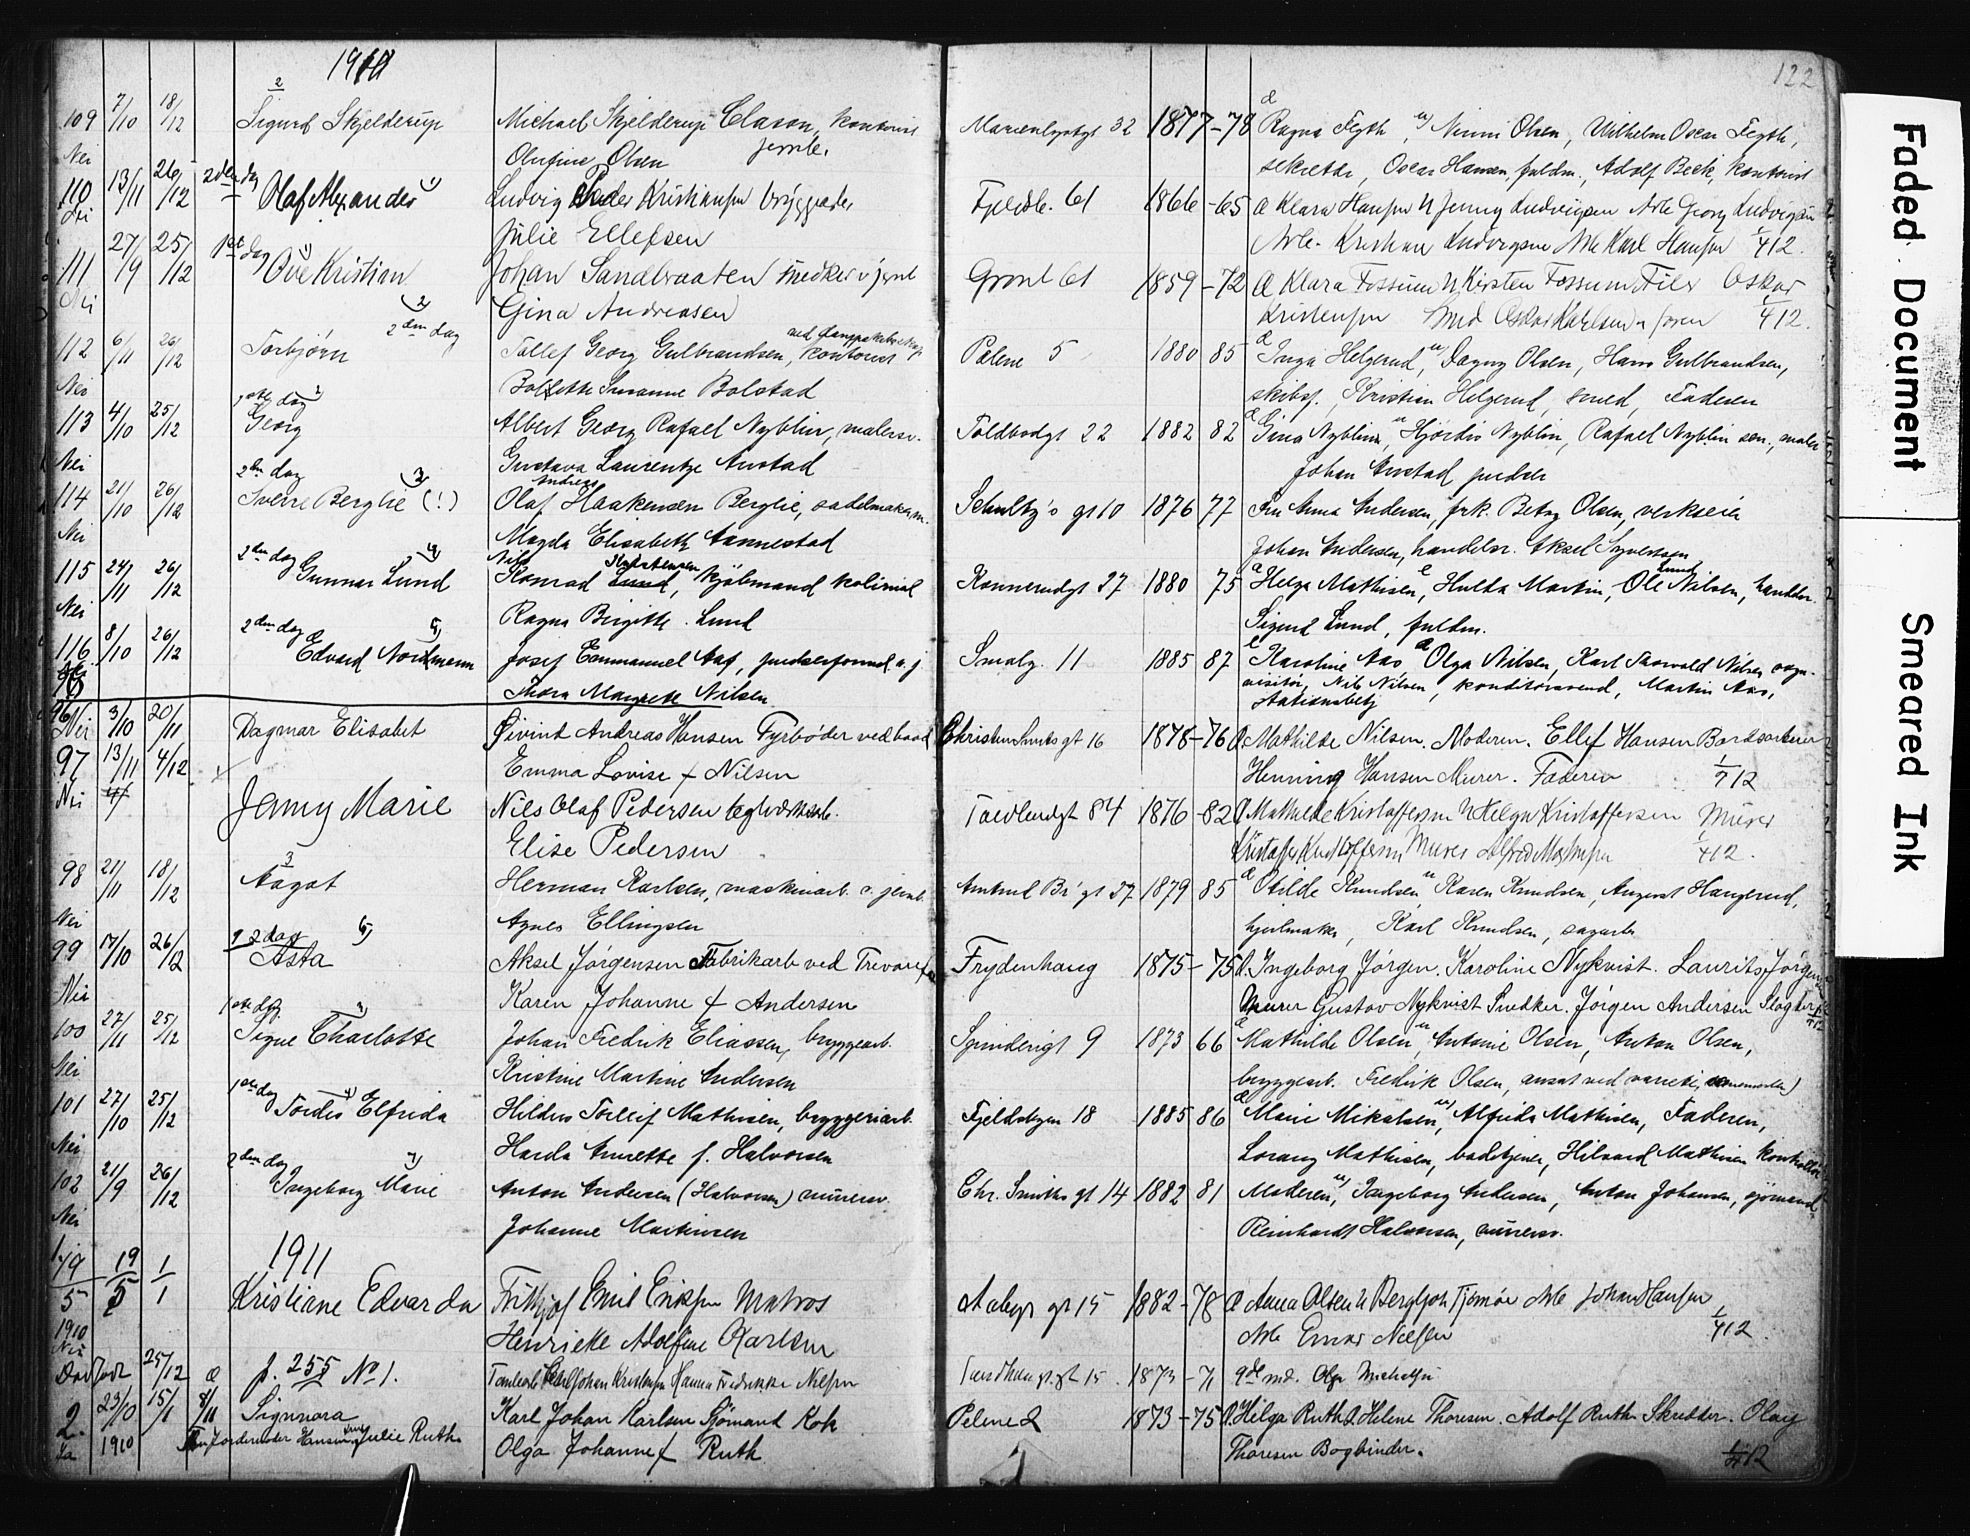 1910
122
109 7/10 18/12 Sigurd Skjelderup Michael Skjelderup Clason, kontorist Marienlystgt 32 1877-78 Ragna Fegth, Ninni Olsen, Wilhelm Oscar Fegth,
Nei Olufine Olsen jernb. sekretær, Oscar Hansen, fuldm., Adolf Beck, kontorist
110 13/11 26/12 2den dag Olaf Alexander Ludvig Peder Kristiansen bryggearb. Fjeldb. 61 1866-65 Klara Hansen Jenny Ludvigsen Arb Georg Ludvigsen
Nei Julie Ellefsen Arb. Kristian Ludvigsen Arb Karl Hansen 1/4 12.
111 27/9 25/12 1ste dag Ove Kristian Johan Sandbraaten snedker v jernb Grønl 61 1859-72 Klara Fossum Kirsten Fossum Oskar
Nei Gina Andreasen Kristensen Smed Oskar Karlsen 1/4 12.
112 6/11 26/12 2den dag Torbjørn Tollef Georg Gulbrandsen, kontorist Pælene 5 1880 85 Inga Helgerud, Dagny Olsen, Hans Gulbrandsen,
Nei Bollette Susanne Bolstad skibsf., Kristian Helgerud, smed, Faderen
113 4/10 25/12 1ste dag Georg Albert Georg Rafael Nyblin, malersv. Toldbodgt 22 1882 82 Gina Nyblin, Hjørdis Nyblin, Rafael Nyblin sen., maler
Nei Gustava Laurentze Anstad Johan Anstad pudser
114 21/10 26/12 2den dag Sverre Berglie (!) Olaf Andreas Haakensen Berglie, sadelmakerm. Schultz's gt 10 1876 77 Fru Anna Andersen, frk. Betzy Olsen, verkseier
Nei Magda Elisabeth Aannestad Johan Andersen, handelsr. Aksel Syvertsen
115 24/11 26/12 2den dag Gunnar Lund Nils Konrad Karstensen, kjøbmand kolonial Konnerudgt 27 1880 75 Helga Mathisen, Hulda Martin, Ole Nilsen Lund, handelsr.
Nei Ragna Birgitte Lund Sigurd Lund, fuldm.
116 8/10 26/12 2den dag Edvard Nordmann Josef Emmanuel Aas, pudserformd. v. j. Smalg. 11 1885 87 Karoline Aas, Olga Nilsen, Karl Thorvald Nilsen vogn-
Thora Margrete Nilsen visitør, Nils Nilsen, konditorsvend, Martin Aas,
stationsbetj
96 3/10 20/11 Dagmar Elisabet Øivind Andreas Hansen Fyrbøder ved baad Christian Smiths gt 16 1878-76 Mathilde Nilsen. Moderen. Ellif Hansen Bordsorterer
Nei Emma Lovise f Nilsen Henning Hansen Murer. Faderen 1/7 12
97 13/11 4/12 Jenny Marie Nils Olaf Pedersen teglverksarb. Tordenskgt 84 1876-82 Mathilde Kristoffersen Helga Kristoffersen Murer
Nei Elise Pedersen Kristoffer Kristoffersen Murer 1/4 12.
98 21/11 18/12 Aagot Herman Karlsen, maskinarb. v. jernb. Amtmd Bl' gt 27 1879 85 Otilde Knudsen, Karen Knudsen, August Haugerud,
Nei Agnes Ellingsen hjulmaker, Karl Knudsen, sagarb.
99 17/10 26/12 2 dag Asta Aksel Jørgensen Fabrikarb ved Trevarefa Frydenhaug 1875-75 Ingeborg Jørgen. Karoline Nykvist. Laurits Jørgen
Nei Karen Johanne f Andersen Murer Gustav Nykvist Snedker. Jørgen Andersen Slagter
100 27/11 25/12 1ste dag Signe Charlotte Johan Fredrik Eliassen, bryggearb. Spinderigt 9 1873 66 Mathilde Olsen, Antonie Olsen, Anton Olsen,
Nei Kristine Martine Andersen bryggearb. Fredrik Olsen, ansat ved varieté
101 27/10 25/12 1ste dag Tordis Elfrida Hildus Torleif Mathisen, bryggeriarb. Fjeldsbyen 18 1885 86 Marie Mikalsen, Alfrida Mathisen, Faderen,
Nei Harda Annette f. Halvorsen Lorang Mathisen, badetjener, Hilvard Mathisen kontrollør
102 21/9 26/12 2den dag Ingeborg Marie Anton Andersen (Halvorsen) murersv. Chr. Smiths gt 14 1882 81 Moderen, Ingeborg Andersen, Anton Johansen, sjømand
Nei Johanne Martinsen Reinhardt Halvorsen, murersv.
1911
19/5 1/1 Kristiane Edvarda Frithjof Emil Eriksen Matros Aabys gt 15 1882-78 Anna Olsen Bergljot Tjomøe Arb Johan Hansen
1910 Nei Henrieke Adolfine Karlsen Arb Einar Nielsen 1/4 12.
Dødfødt 25/12 p. 255 No 1. Carl Johan Kristensen Hanna Fredrikke Nilsen gt 15 1873-71 9de md. Olga Michelsen
2. 23/10 15/1 8/11 Signora Karl Johan Karlsen Sjømand Kok Pelene 2 1873-75 Helga Ruth. Helene Thoresen. Adolf Ruth Skredder. Olaf
Ja 1910 Julie Ruth Olga Johanne f Ruth Thoresen Bogbinder. 1/4 12
Faded Document
Smeared Ink